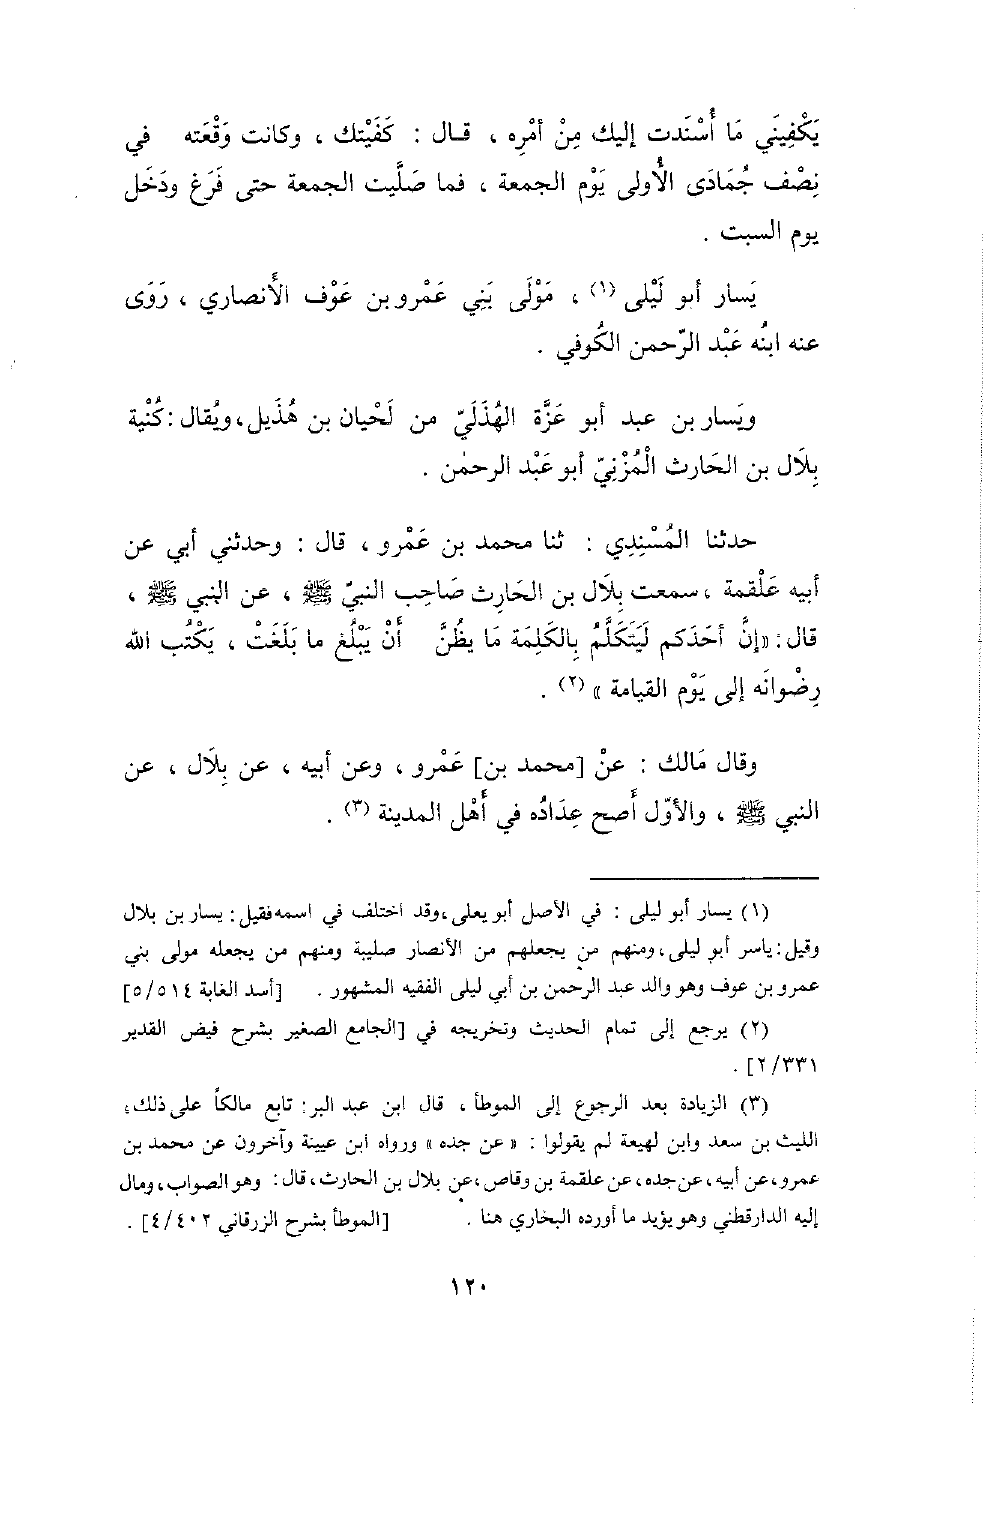 يَكْفِيَني مَا أُسْنَدت إليك مِنْ أمْرِه ، قــال : كَفَيْتك ، وكانت وَقْعَته في
نِصْف جُمَادَى الأُولى يَوْم الجمعة ، فما صَلَّيت الجمعة حتى فَرَغ ودَخَل
يوم السبت .
يَسار أبو لَيْلى (١) ، مَوْلَى بَنِي عَمْرو بن عَوْف الأنصاري ، رَوَى
عنه ابنُه عَبْد الرّحمن الكُوفي .
ويَسار بن عبد أبو عَزَّة الهُذَلَيّ من لَحْيان بن هُذَيل ، ويُقال : كُنْية
بِلَال بن الحَارث الْمُزْنِيّ أبو عَبْد الرحمٰن .
حدثنا المُسْنِدِي : ثنا محمد بن عَمْرو ، قال : وحدثني أبي عن
أبيه عَلْقمة ، سمعت بِلَال بن الحَارِث صَاحِب النبيّ ﷺ ، عن النبي ﷺ ،
قال : «إنَّ أحَدَكم لَيَتَكَلَّمُ بِالكَلِمَة مَا يظُنَّ أَنْ يَبْلُغ ما بَلَغَتْ ، يَكْتُب الله
رِضْوانَه إلى يَوْم القيامة » (٢) .
وقال مَالك : عنْ [محمد بن] عَمْرو ، وعن أبيه ، عن بِلَال ، عن
النبي ﷺ ، والأوّل أَصح عِدَادُه في أَهْل المدينة (٣) .
(١) يسار أبو ليلى : في الأصل أبو يعلى ، وقد اختلف في اسمه فقيل : يسار بن بلال
وقيل : ياسر أبو ليلى ، ومنهم من يجعلهم من الأنصار صليبة ومنهم من يجعله مولى بني
عمرو بن عوف وهو والد عبد الرحمن بن أبي ليلى الفقيه المشهور . [أسد الغابة ٥/٥١٤]
(٢) يرجع إلى تمام الحديث وتخريجه في [الجامع الصغير بشرح فيض القدير
٢/٣٣١] .
(٣) الزيادة بعد الرجوع إلى الموطأ ، قال ابن عبد البر : تابع مالكاً على ذلك ؛
الليث بن سعد وابن لهيعة لم يقولوا : « عن جده » ورواه ابن عيينة وآخرون عن محمد بن
عمرو ، عن أبيه ، عن جده ، عن علقمة بن وقاص ، عن بلال بن الحارث ، قال : وهو الصواب ، ومال
إليه الدارقطني وهو يؤيد ما أورده البخاري هنا . [الموطأ بشرح الزرقاني ٤/٤٠٢] .
١٢٠